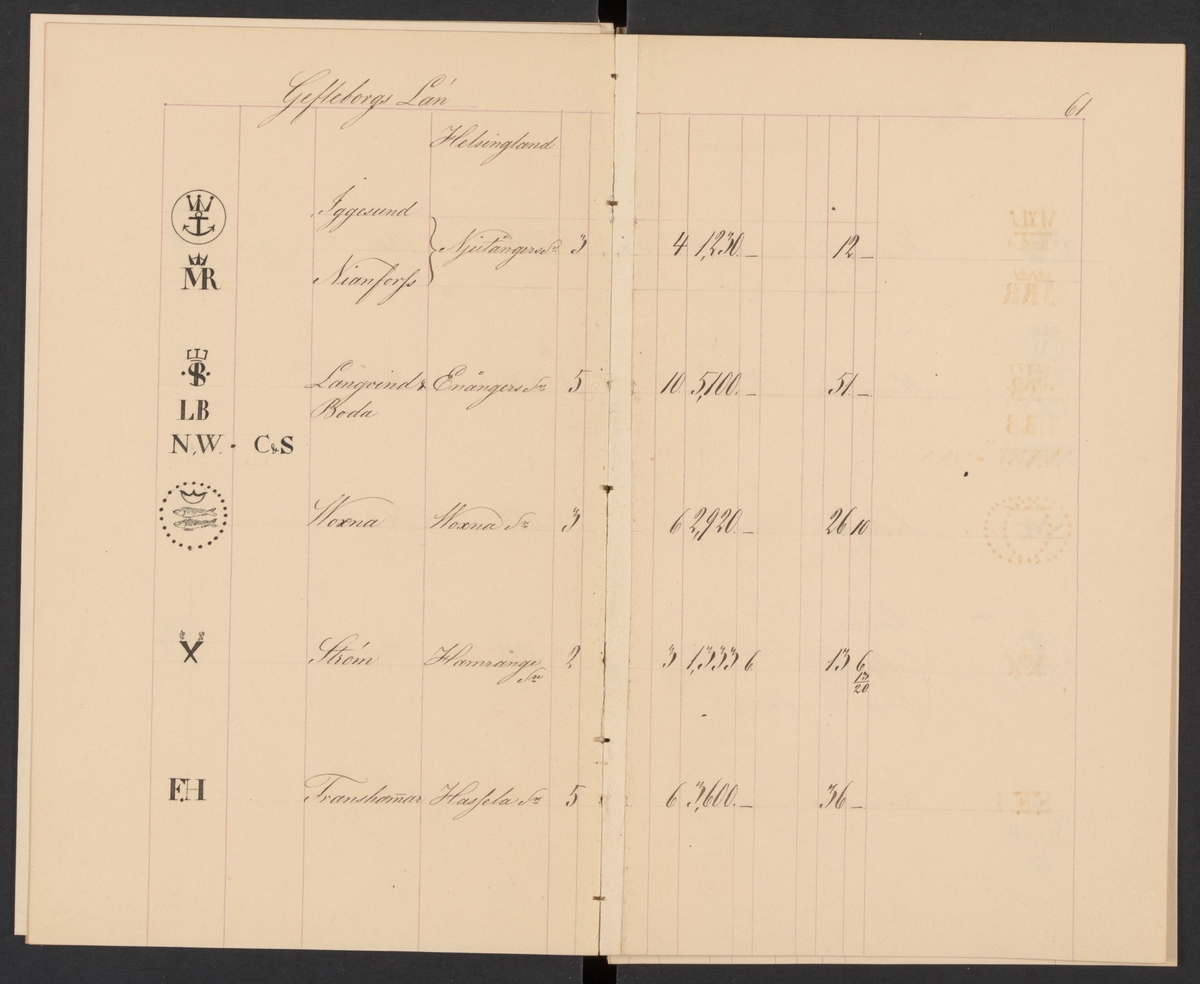 Gefleborgs Län
61
Helsingland
Iggesund
Njutångers Sn 3 4 1,230. — 12 —
MR Nianforss
B Långvind & Enångers Sn 5 10 5,100. — 51 —
LB Boda
N.W. · C&S
Woxna Woxna Sn 3 6 2,920. — 26 10
Ström Hamrånge 2 3 1,333 6 13 6
Sn 13/20
F.H Fransham̄ar Hassela Sn 5 6 3,600. — 36 —